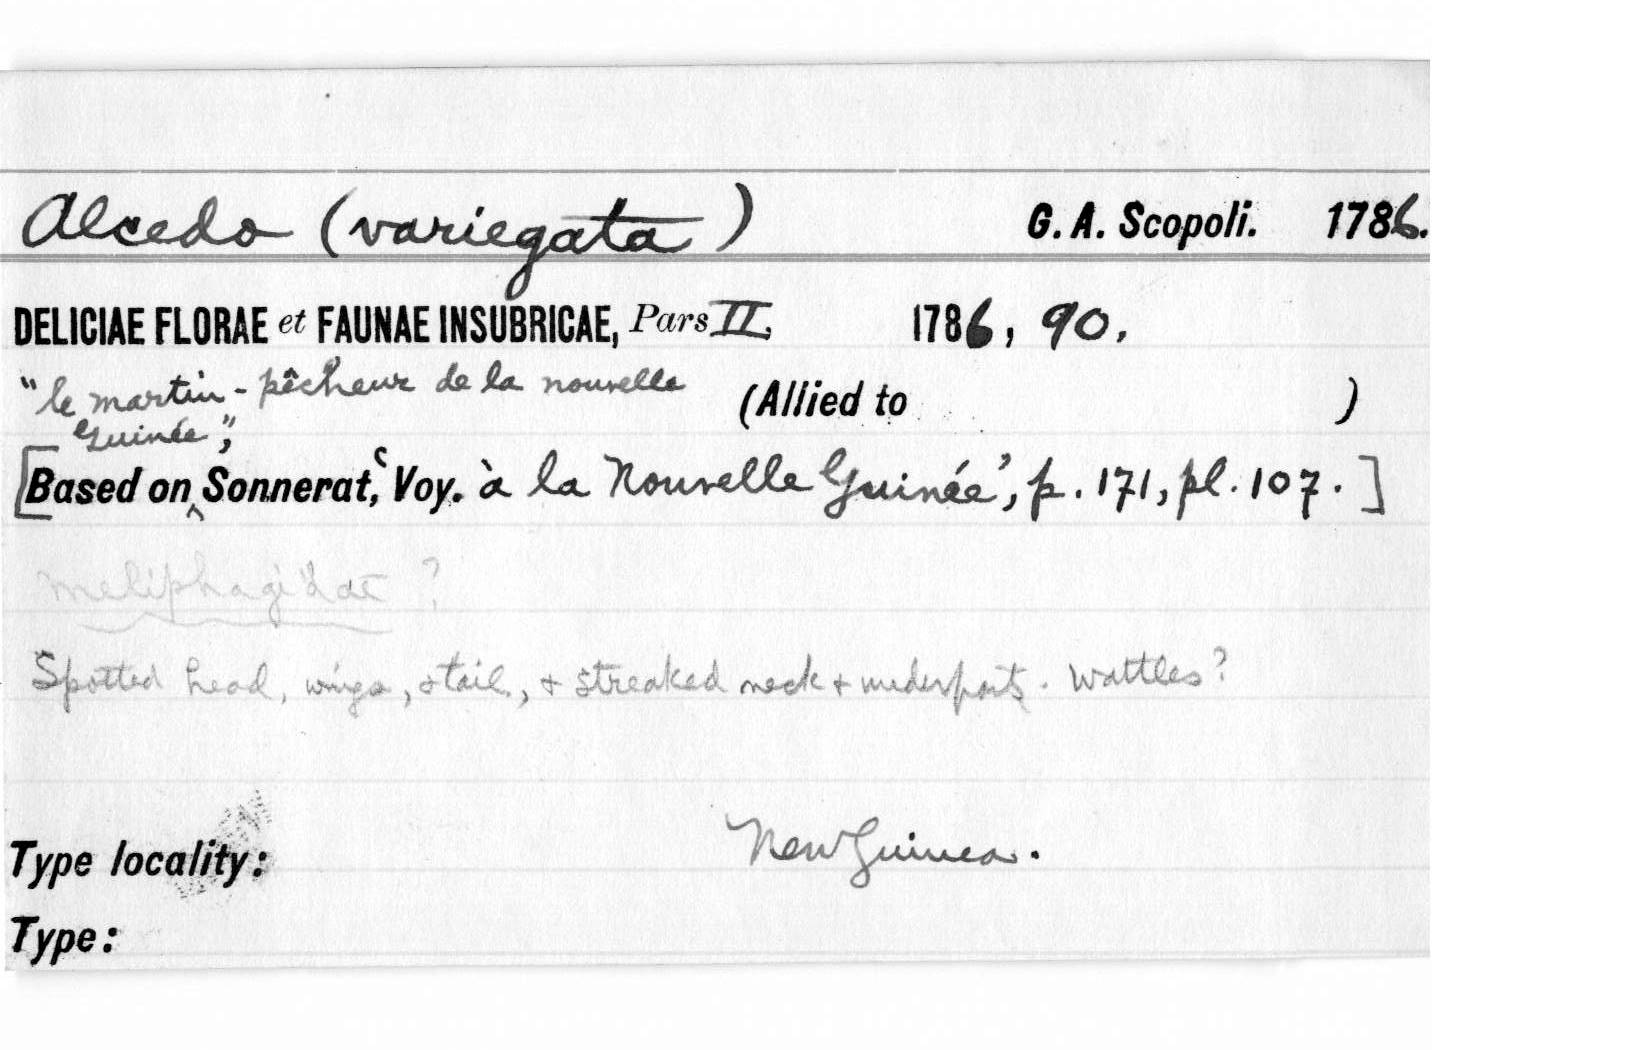 Alcedo (variegata) G. A. Scopoli. 1786.
DELICIAE FLORAE et FAUNAE INSUBRICAE, Pars II, 1786, 90.
"le martin-pêcheur de la nouvelle (Allied to )
Guinée",
[Based on ^ Sonnerat, 'Voy. à la Nouvelle Guinée', p. 171, pl. 107.]
Meliphagidae ?
Spotted head, wings, & tail, & streaked neck & underparts. Wattles?
Type locality: New Guinea.
Type: